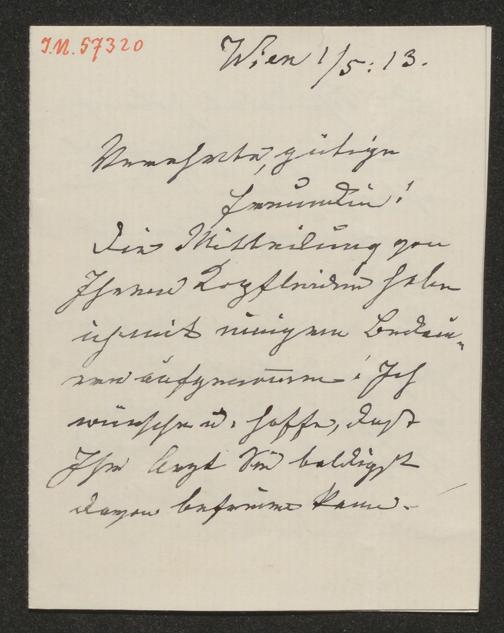 I.N. 57320
Wien 1/5. 13.
Verehrte, gütige
Freundin!
Die Mitteilung von
Ihrem Kopfleiden habe
ich mit innigem Bedau-
ren aufgenommen! Ich
wünsche u. hoffe, daß
Ihr Arzt Sie baldigst
davon befreien kann.